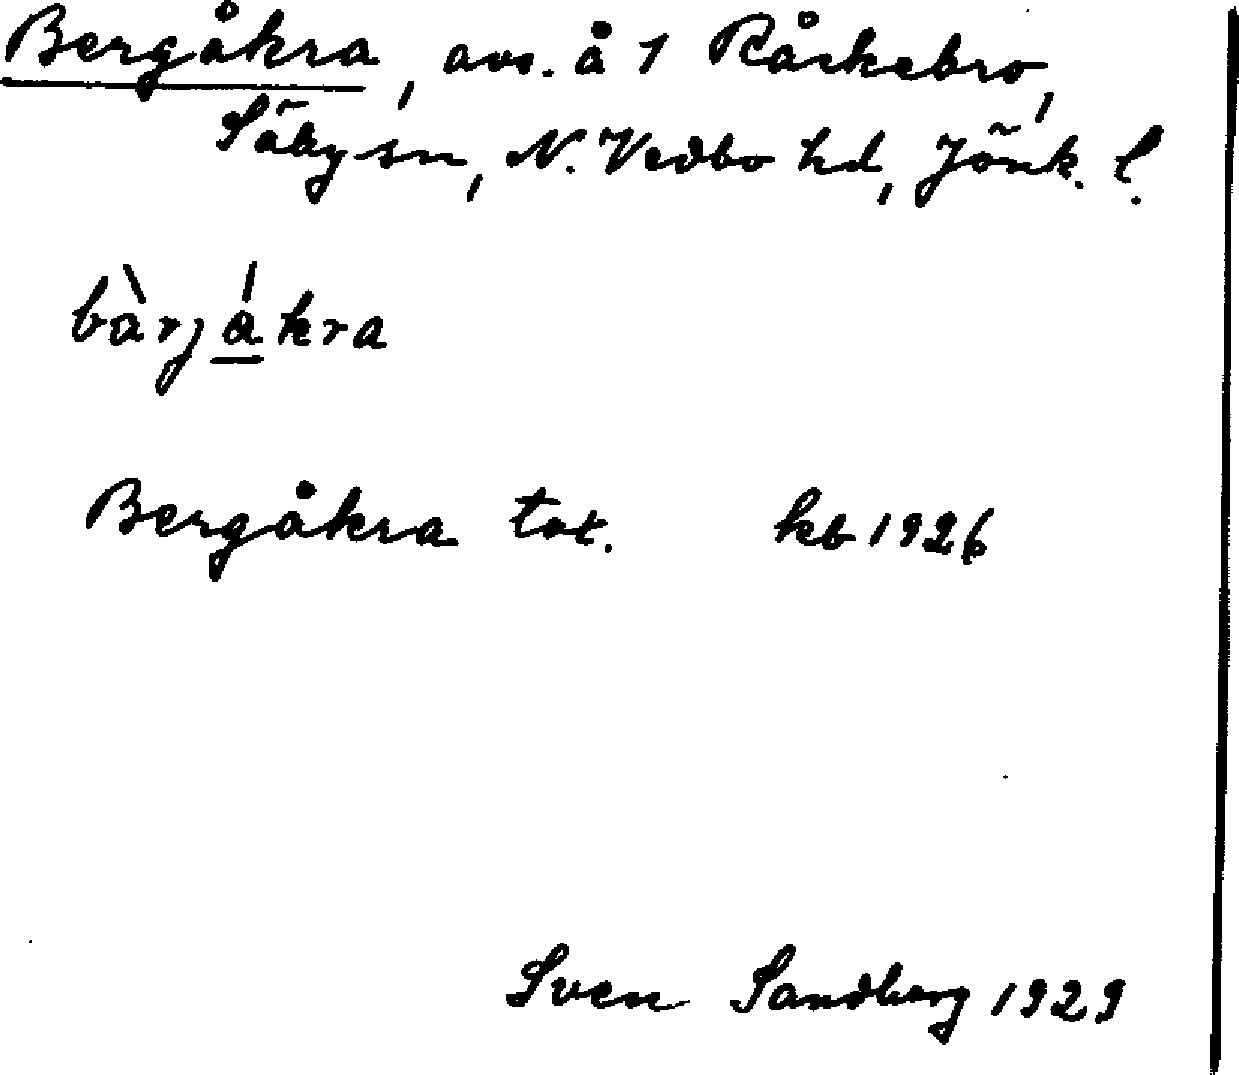 Bergåkra, avs. å 1 Råskebro,
Säby sn, N. Vedbo hd, Jönk. l.
bàrjákra
Bergåkra tot. kb 1926
Sven Sandberg 1929